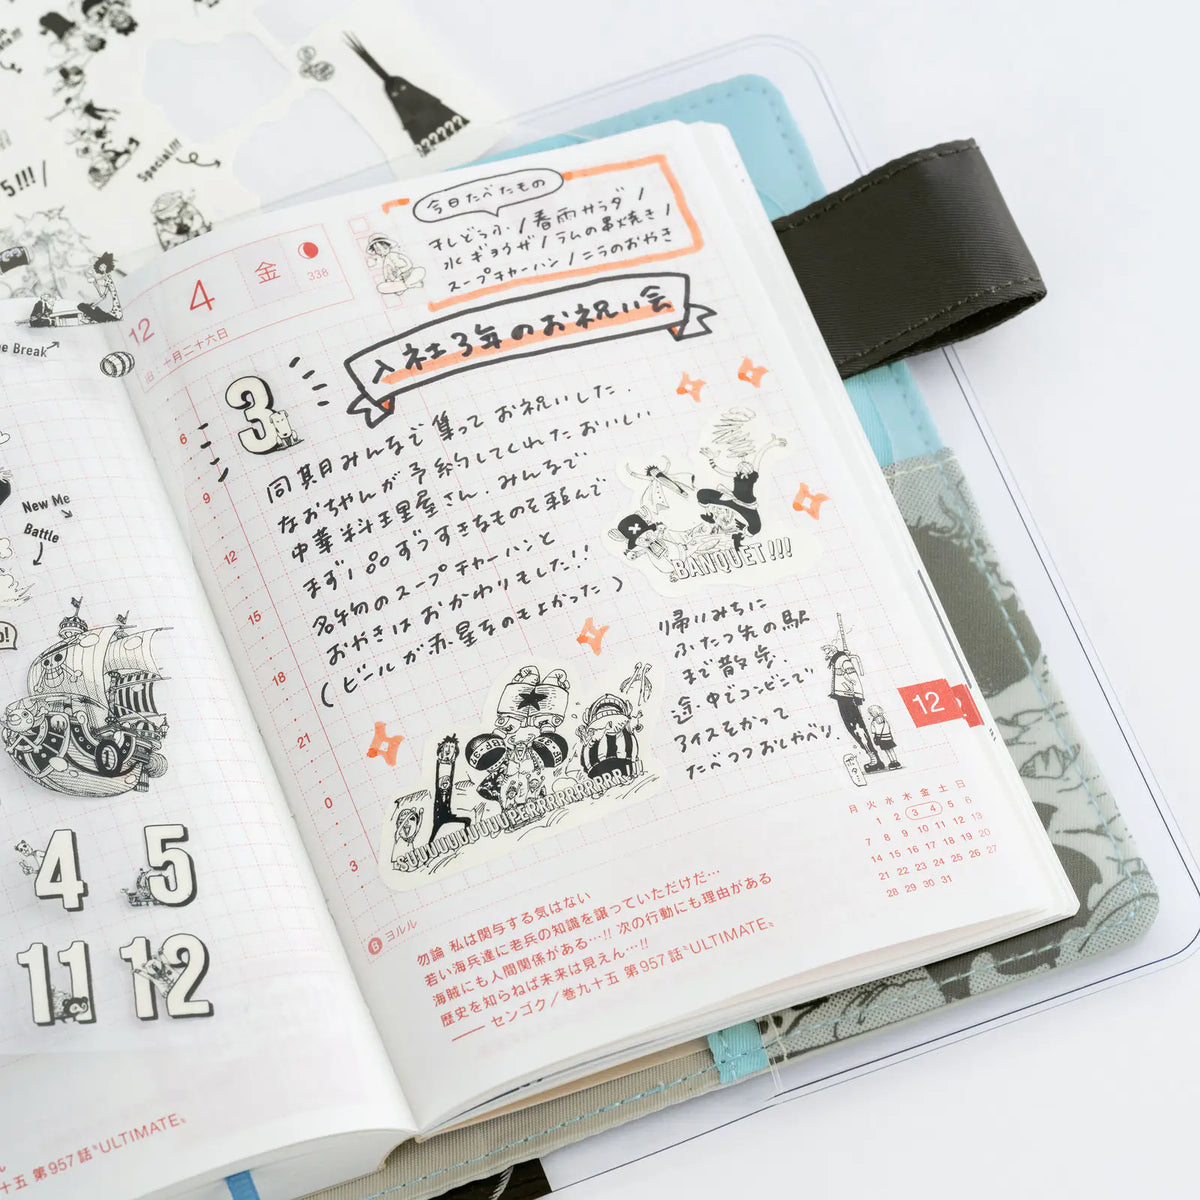 Special!!!
5!!!
???????
e Break
New Me
Battle
4
5
11
12
12
4
金
338
旧:十月二十六日
今日たべたもの
むしどうふ/春雨サラダ/
水ギョウザ/ラムの串焼き/
スープチャーハン/ニラのおやき
入社3年のお祝い会
3
6
9
12
15
18
21
0
3
同期みんなで集ってお祝いした.
なおちゃんが予約してくれたおいしい
中華料理屋さん.みんなで
まず1品ずつすきなものを頼んで
名物のスープチャーハンと
おやきはおかわりもした!!
(ビールが赤星なのもよかった)
BANQUET!!!
帰りみちに
ふたつ先の駅
まで散歩.
途中でコンビニで
アイスをかって
たべつつおしゃべり.
12
月 火 水 木 金 土 日
1 2 3 4 5 6
7 8 9 10 11 12 13
14 15 16 17 18 19 20
21 22 23 24 25 26 27
28 29 30 31
B ヨルル
勿論 私は関与する気はない
若い海兵達に老兵の知識を譲っていただけだ…
海賊にも人間関係がある…!! 次の行動にも理由がある
歴史を知らねば未来は見えん…!!
── センゴク/巻九十五 第957話〝ULTIMATE〟
十五 第957話〝ULTIMATE〟